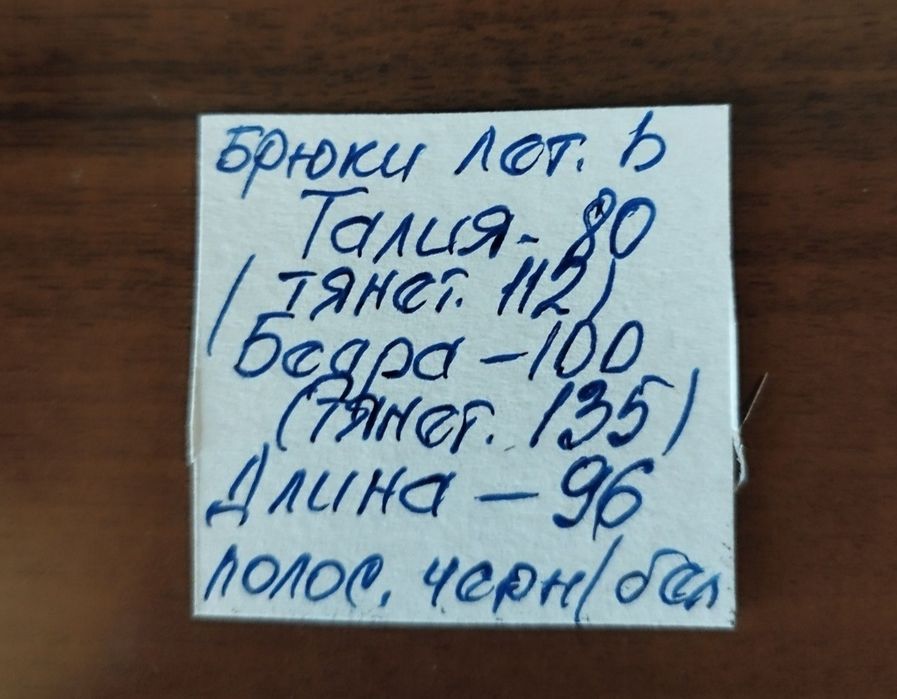 Брюки лет. Ь
Талия - 80
(тянет. 112)
Бедра - 100
(тянет. 135)
Длина - 96
полос. черн/бел